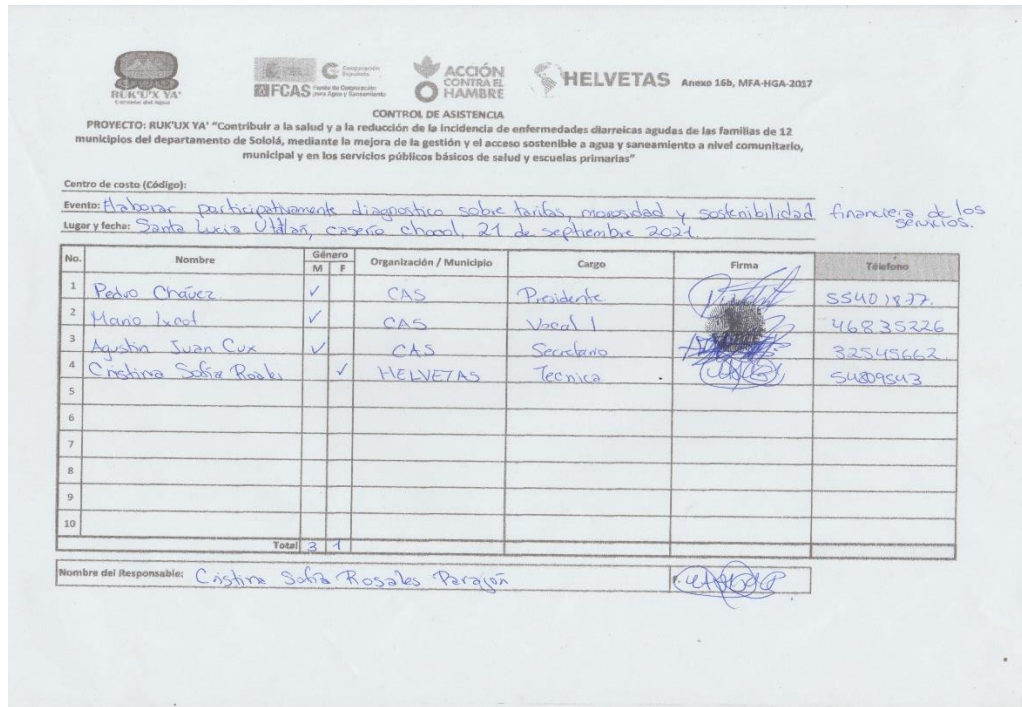 RUK'UX YA'
Corazón del Agua
Cooperación Española
FCAS Fondo de Cooperación para Agua y Saneamiento
ACCIÓN CONTRA EL HAMBRE
HELVETAS Anexo 16b, MFA-HGA-2017
CONTROL DE ASISTENCIA
PROYECTO: RUK'UX YA' "Contribuir a la salud y a la reducción de la incidencia de enfermedades diarreicas agudas de las familias de 12
municipios del departamento de Sololá, mediante la mejora de la gestión y el acceso sostenible a agua y saneamiento a nivel comunitario,
municipal y en los servicios públicos básicos de salud y escuelas primarias"
Centro de costo (Código):
Evento: Elaborar participativamente diagnostico sobre tarifas, morosidad y sostenibilidad financiera de los servicios.
Lugar y fecha: Santa Lucia Utatlan, caserio 21 de septiembre 2021.
No. Nombre Género M F Organización / Municipio Cargo Firma Télefono
1 Pedro Chávez ✓ CAS Presidente 55401877.
2 Mario Ixcol ✓ CAS Vocal 1 46835226
3 Agustin Juan Cux ✓ CAS Secretario 32545662
4 Cristina Sofía Rosales ✓ HELVETAS Tecnica 54809543
5
6
7
8
9
10
Total 3 1
Nombre del Responsable: Cristina Sofía Rosales Parajón F.